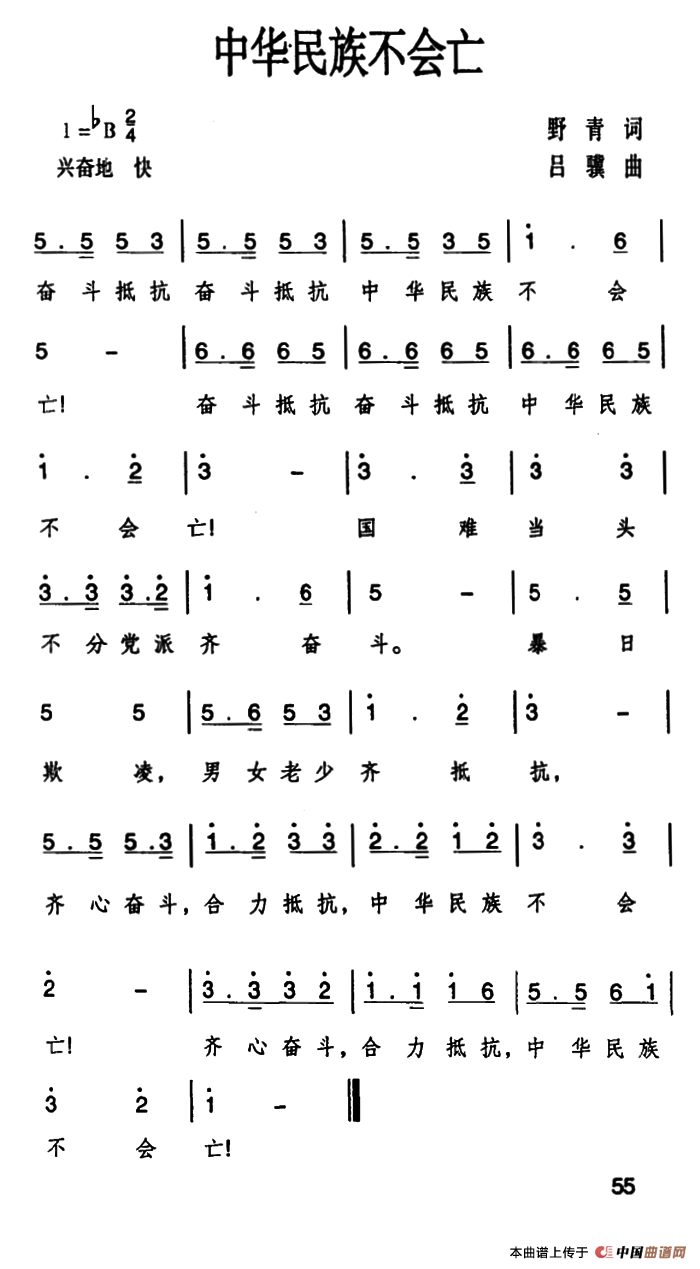 中华民族不会亡
1=♭B 2/4
野青词
兴奋地 快
吕骥曲
5 . 5 5 3 | 5 . 5 5 3 | 5 . 5 3 5 | i . 6 |
奋斗抵抗 奋斗抵抗 中华民族 不会
5 - | 6 . 6 6 5 | 6 . 6 6 5 | 6 . 6 6 5 |
亡! 奋斗抵抗 奋斗抵抗 中华民族
i . 2̇ | 3̇ - | 3̇ . 3̇ | 3̇ 3̇ |
不会 亡! 国难 当头
3̇ . 3̇ 3̇ . 2̇ | i . 6 | 5 - | 5 . 5 |
不分党派 齐奋 斗。 暴日
5 5 | 5 . 6 5 3 | i . 2̇ | 3̇ - |
欺凌, 男女老少 齐抵 抗,
5 . 5 5 . 3 | i . 2̇ 3̇ 3̇ | 2̇ . 2̇ i 2̇ | 3̇ . 3̇ |
齐心奋斗, 合力抵抗, 中华民族 不会
2̇ - | 3̇ . 3̇ 3̇ 2̇ | i . i i 6 | 5 . 5 6 i |
亡! 齐心奋斗, 合力抵抗, 中华民族
3̇ 2̇ | i - ‖
不会 亡!
55
本曲谱上传于 中国曲谱网